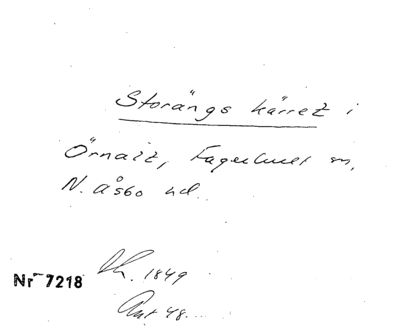 Storängs kärret i
Örnalt, Fagerhult sn,
N. åsbo hd.
Nr 7218
1849
Ant 48...